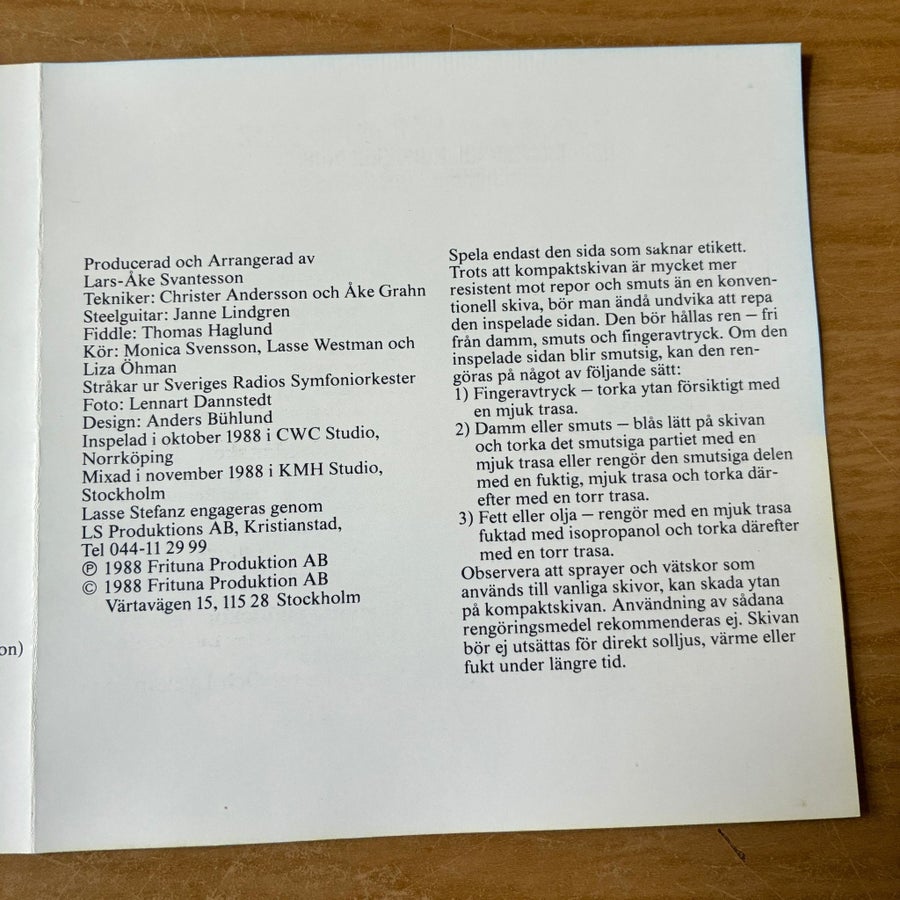 Producerad och Arrangerad av
Lars-Åke Svantesson
Tekniker: Christer Andersson och Åke Grahn
Steelguitar: Janne Lindgren
Fiddle: Thomas Haglund
Kör: Monica Svensson, Lasse Westman och
Liza Öhman
Stråkar ur Sveriges Radios Symfoniorkester
Foto: Lennart Dannstedt
Design: Anders Bühlund
Inspelad i oktober 1988 i CWC Studio,
Norrköping
Mixad i november 1988 i KMH Studio,
Stockholm
Lasse Stefanz engageras genom
LS Produktions AB, Kristianstad,
Tel 044-11 29 99
℗ 1988 Frituna Produktion AB
© 1988 Frituna Produktion AB
Värtavägen 15, 115 28 Stockholm
on)
Spela endast den sida som saknar etikett.
Trots att kompaktskivan är mycket mer
resistent mot repor och smuts än en konven-
tionell skiva, bör man ändå undvika att repa
den inspelade sidan. Den bör hållas ren – fri
från damm, smuts och fingeravtryck. Om den
inspelade sidan blir smutsig, kan den ren-
göras på något av följande sätt:
1) Fingeravtryck – torka ytan försiktigt med
en mjuk trasa.
2) Damm eller smuts – blås lätt på skivan
och torka det smutsiga partiet med en
mjuk trasa eller rengör den smutsiga delen
med en fuktig, mjuk trasa och torka där-
efter med en torr trasa.
3) Fett eller olja – rengör med en mjuk trasa
fuktad med isopropanol och torka därefter
med en torr trasa.
Observera att sprayer och vätskor som
används till vanliga skivor, kan skada ytan
på kompaktskivan. Användning av sådana
rengöringsmedel rekommenderas ej. Skivan
bör ej utsättas för direkt solljus, värme eller
fukt under längre tid.